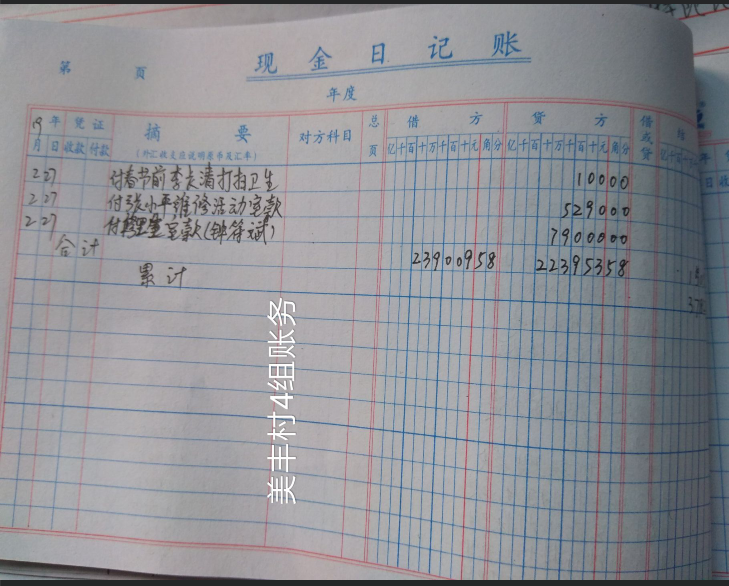 现金日记账
第 页
年度
19年 凭证 摘要 对方科目 总页 借方 贷方 借或贷 结
月 日 收款 付款 (外汇收支应说明原币及汇率) 亿千百十万千百十元角分 亿千百十万千百十元角分
2 27 付春节前李夫清打扫卫生 10000
2 27 付张小平维修活动室款 529000
2 27 室款(钟符斌) 7900000
合计 23900958 22395358
累计
美丰村4组账务